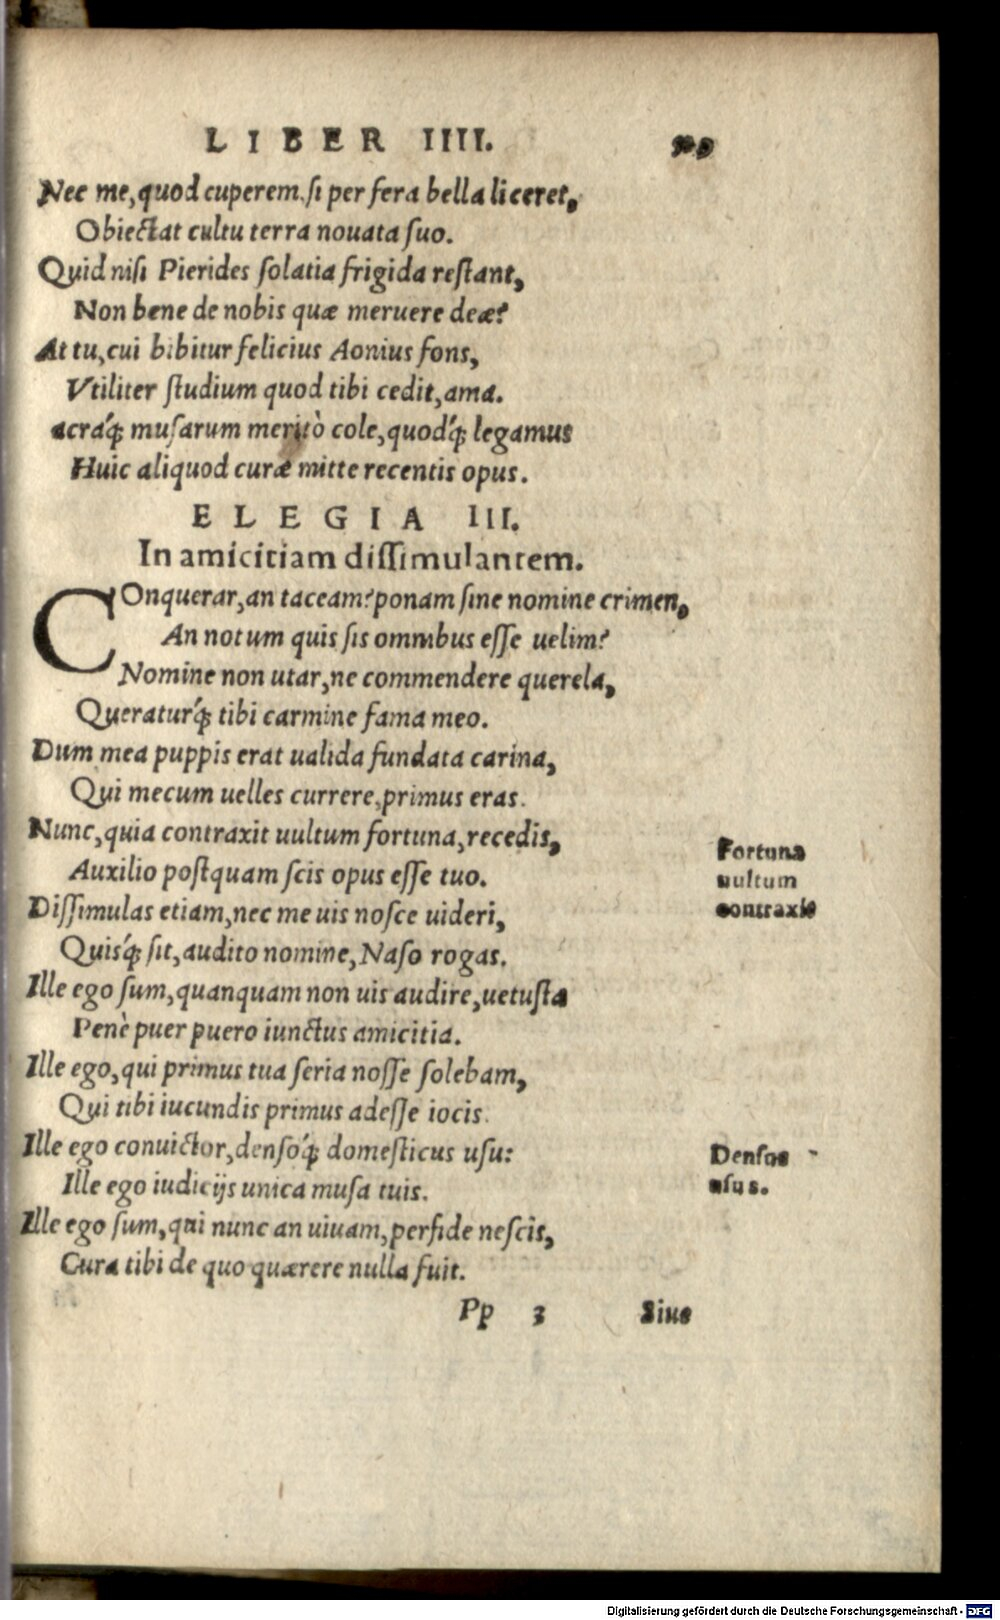 LIBER IIII.
Nec me, quod cuperem, si per fera bella liceret,
Obiectat cultu terra nouata suo.
Quid nisi Pierides solatia frigida restant,
Non bene de nobis quæ meruere deæ?
At tu, cui bibitur felicius Aonius fons,
Vtiliter studium quod tibi cedit, ama.
acráq́; musarum meritò cole, quodq́; legamus
Huic aliquod curæ mitte recentis opus.
ELEGIA III.
In amicitiam dissimulantem.
COnquerar, an taceam? ponam sine nomine crimen,
An notum quis sis omnibus esse uelim?
Nomine non utar, ne commendere querela,
Queraturq́; tibi carmine fama meo.
Dum mea puppis erat ualida fundata carina,
Qui mecum uelles currere, primus eras.
Nunc, quia contraxit uultum fortuna, recedis,
Auxilio postquam scis opus esse tuo.
Fortuna
uultum
contraxit
Dissimulas etiam, nec me uis nosce uideri,
Quisq́; sit, audito nomine, Naso rogas.
Ille ego sum, quanquam non uis audire, uetusta
Penè puer puero iunctus amicitia.
Ille ego, qui primus tua seria nosse solebam,
Qui tibi iucundis primus adesse iocis.
Ille ego conuictor, densoq́; domesticus usu:
Ille ego iudicijs unica musa tuis.
Densos
usus.
Ille ego sum, qui nunc an uiuam, perfide nescis,
Cura tibi de quo quærere nulla fuit.
Pp 3 Siue
Digitalisierung gefördert durch die Deutsche Forschungsgemeinschaft - DFG